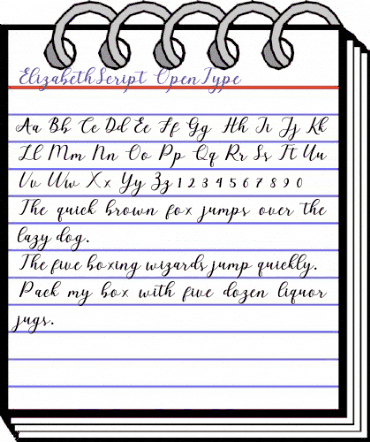 ElizabethScript OpenType
Aa Bb Cc Dd Ee Ff Gg Hh Ii Jj Kk
Ll Mm Nn Oo Pp Qq Rr Ss Tt Uu
Vv Ww Xx Yy Zz 1 2 3 4 5 6 7 8 9 0
The quick brown fox jumps over the
lazy dog.
The five boxing wizards jump quickly.
Pack my box with five dozen liquor
jugs.